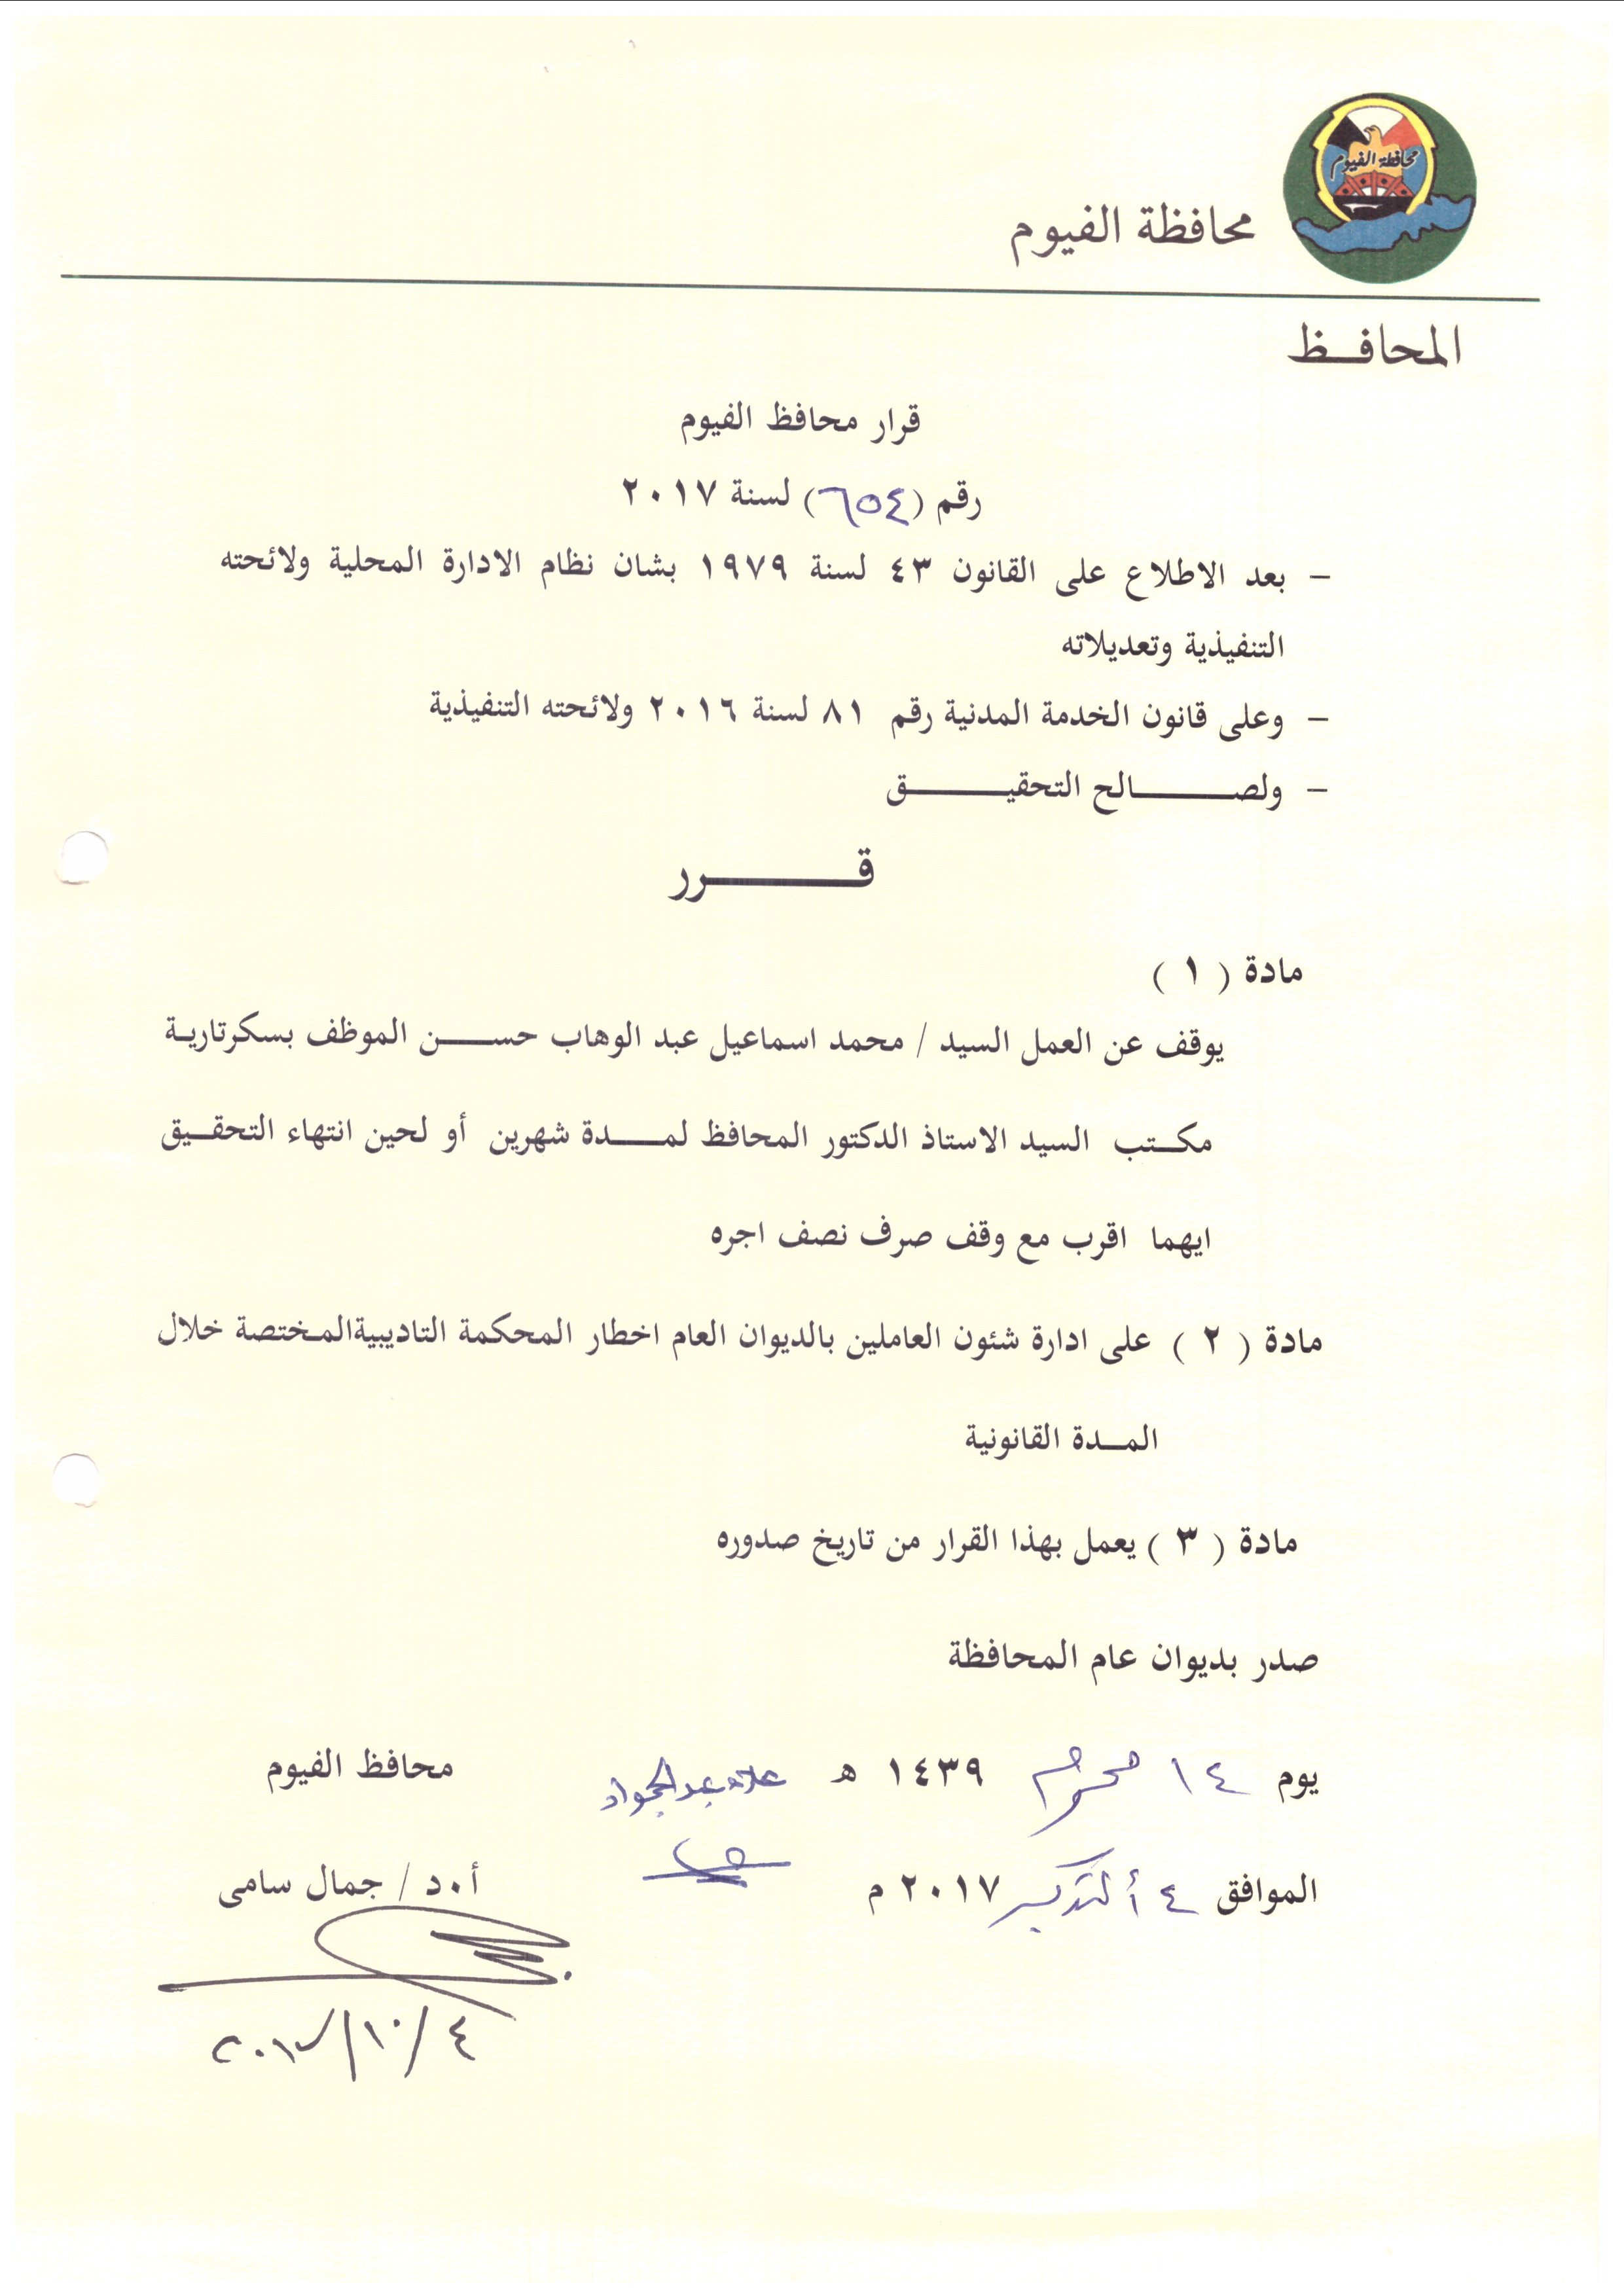 محافظة الفيوم
محافظة الفيوم
المحافظ
قرار محافظ الفيوم
رقم (٦٥٤) لسنة ٢٠١٧
- بعد الاطلاع على القانون ٤٣ لسنة ١٩٧٩ بشان نظام الادارة المحلية ولائحته
التنفيذية وتعديلاته
- وعلى قانون الخدمة المدنية رقم ٨١ لسنة ٢٠١٦ ولائحته التنفيذية
- ولصالح التحقيق
قرر
مادة ( ١ )
يوقف عن العمل السيد / محمد اسماعيل عبد الوهاب حسن الموظف بسكرتارية
مكتب السيد الاستاذ الدكتور المحافظ لمدة شهرين أو لحين انتهاء التحقيق
ايهما اقرب مع وقف صرف نصف اجره
مادة ( ٢ ) على ادارة شئون العاملين بالديوان العام اخطار المحكمة التاديبيةالمختصة خلال
المدة القانونية
مادة ( ٣ ) يعمل بهذا القرار من تاريخ صدوره
صدر بديوان عام المحافظة
يوم ١٤ محرم ١٤٣٩ ه
علاء عبد الجواد
محافظ الفيوم
الموافق ٤ أكتوبر ٢٠١٧ م
أ.د / جمال سامى
٤/١٠/٢٠١٧